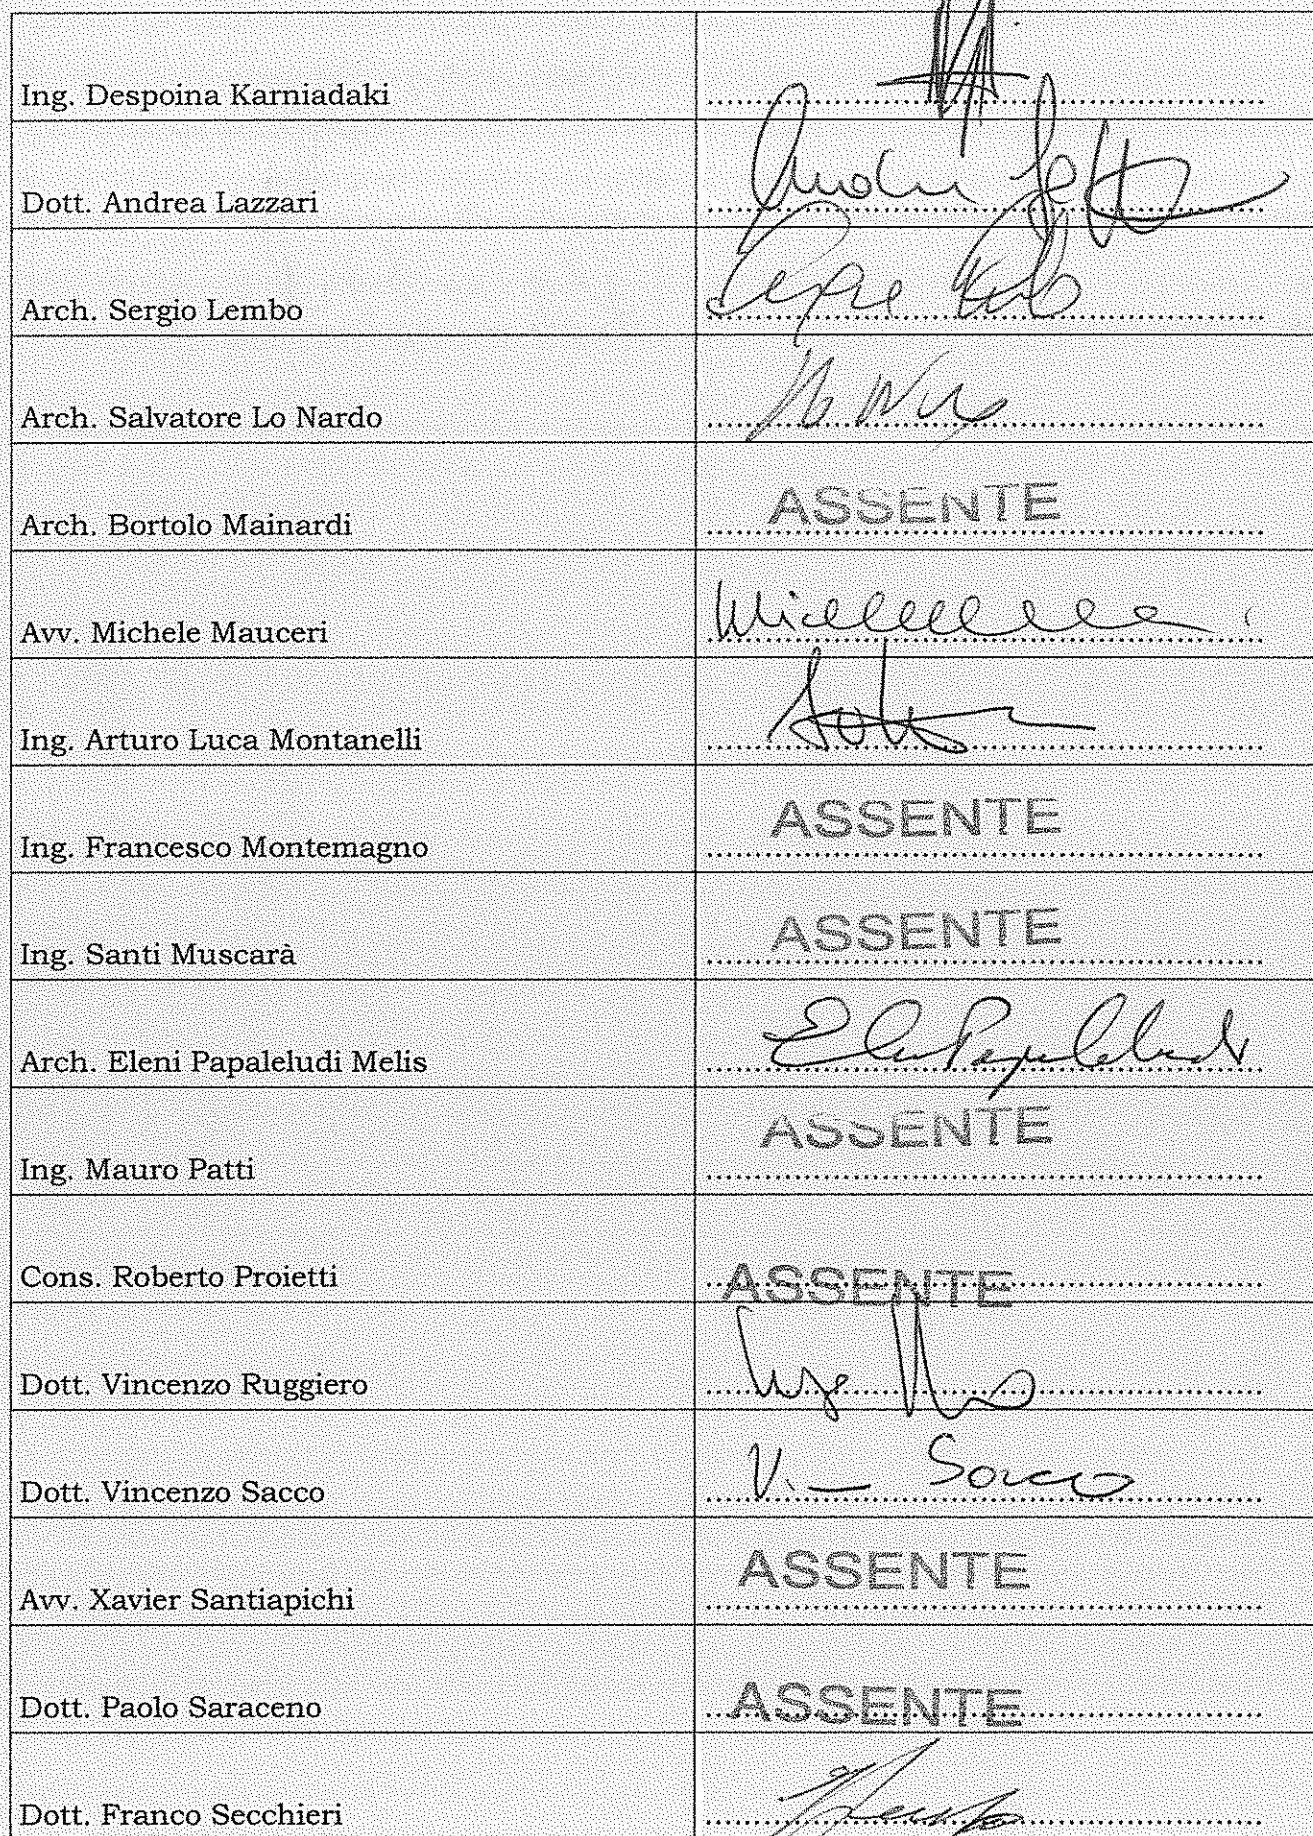 Ing. Despoina Karniadaki
Dott. Andrea Lazzari
Arch. Sergio Lembo
Arch. Salvatore Lo Nardo
Arch. Bortolo Mainardi ASSENTE
Avv. Michele Mauceri
Ing. Arturo Luca Montanelli
Ing. Francesco Montemagno ASSENTE
Ing. Santi Muscarà ASSENTE
Arch. Eleni Papaleludi Melis
Ing. Mauro Patti ASSENTE
Cons. Roberto Proietti ASSENTE
Dott. Vincenzo Ruggiero
Dott. Vincenzo Sacco V. Sacco
Avv. Xavier Santiapichi ASSENTE
Dott. Paolo Saraceno ASSENTE
Dott. Franco Secchieri